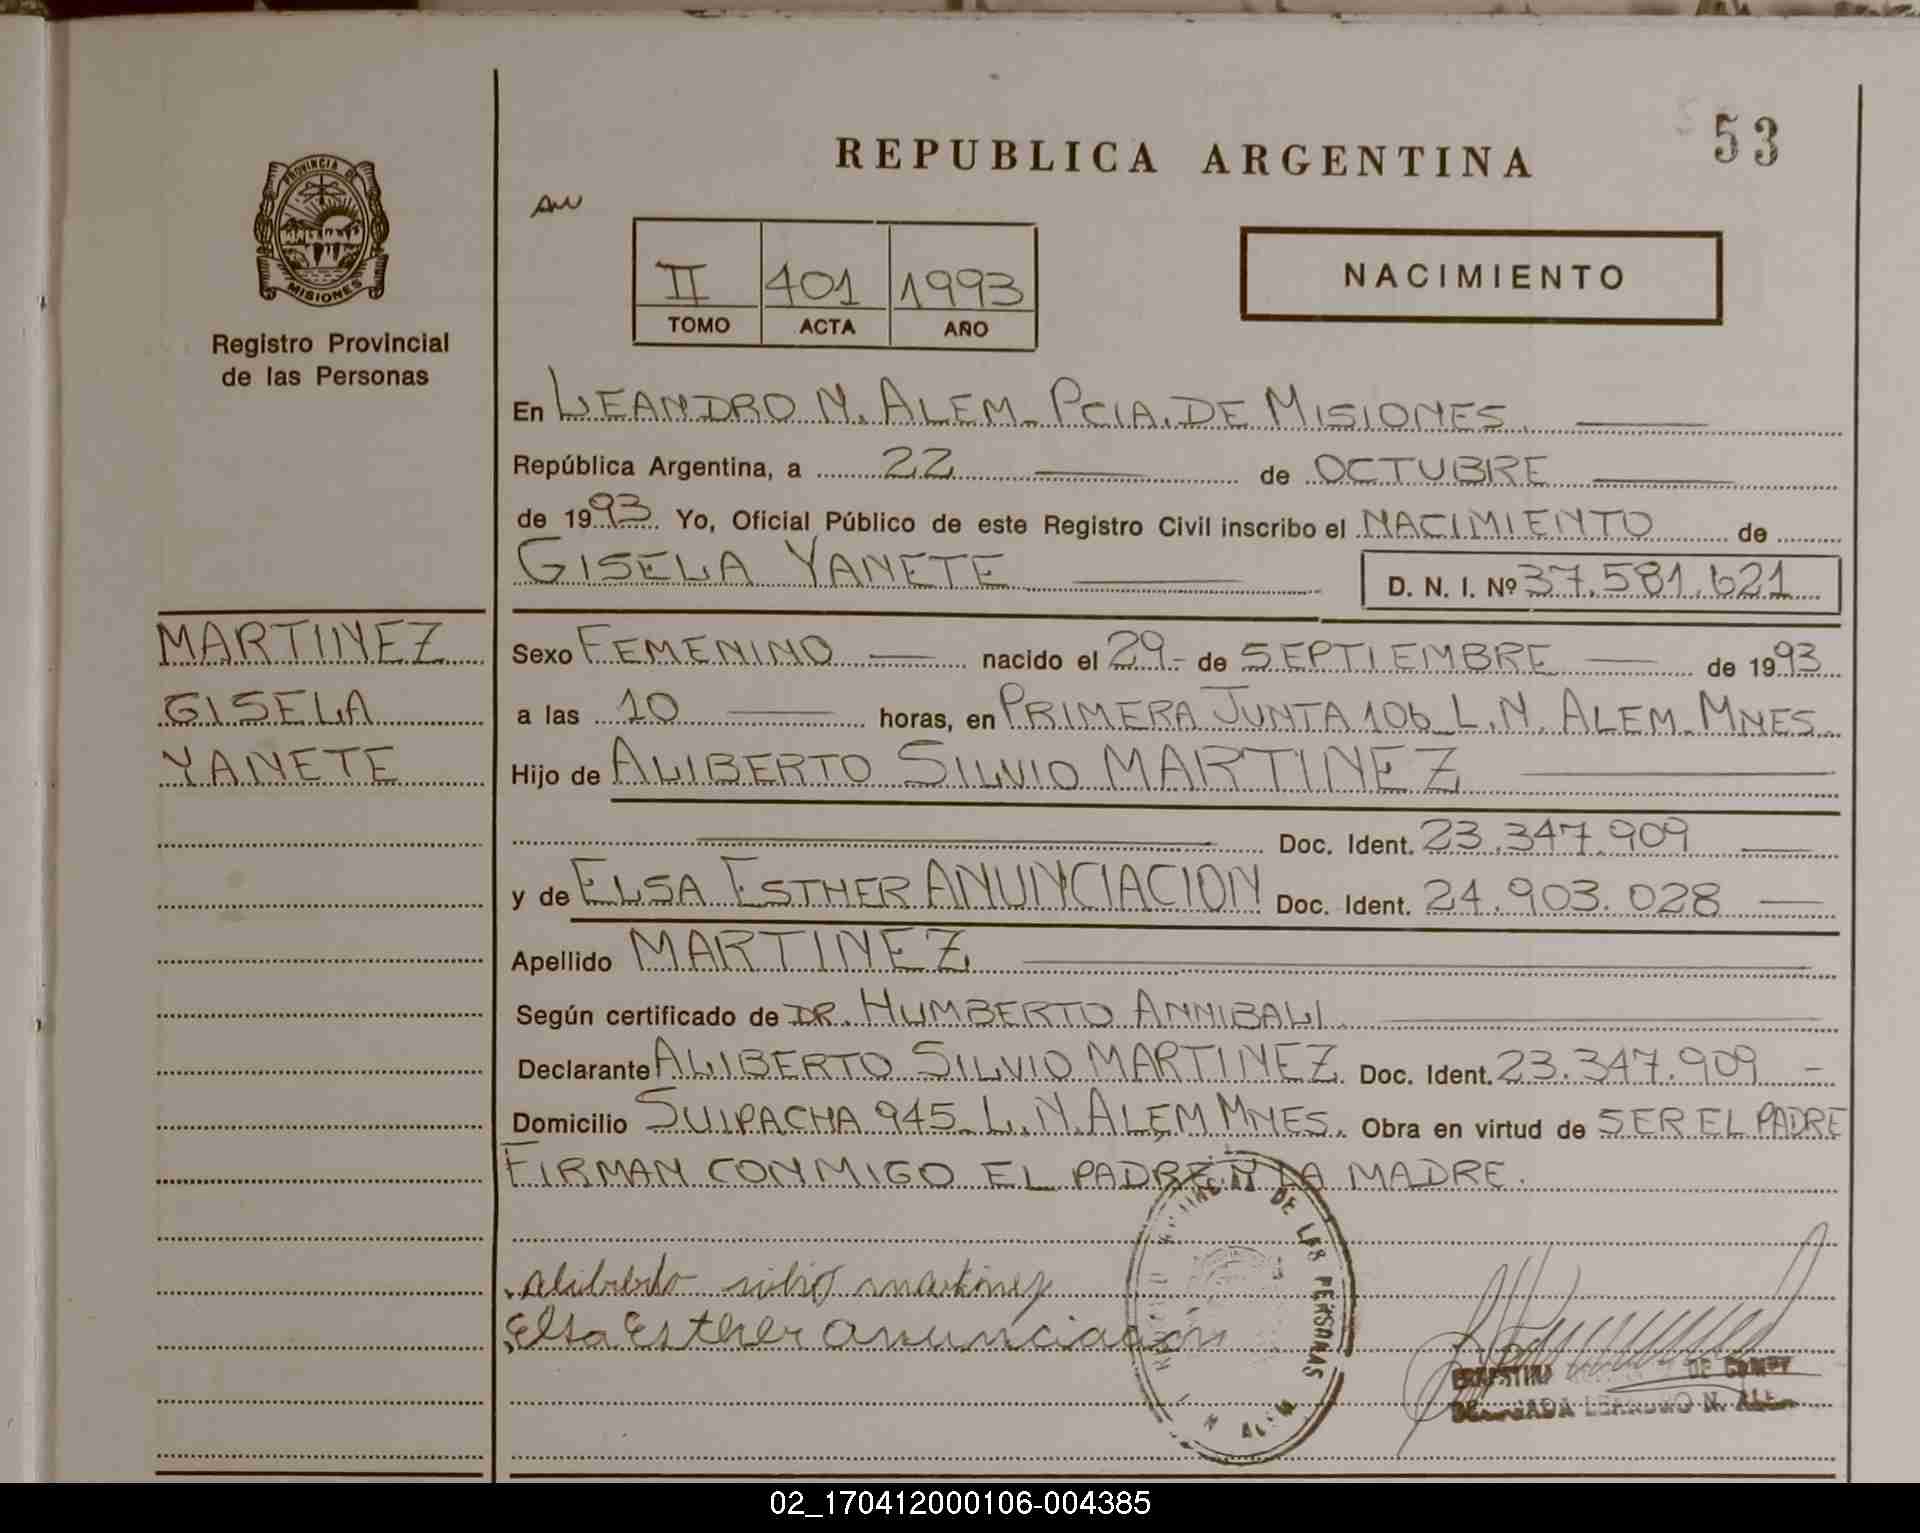 53
REPUBLICA ARGENTINA
PROVINCIA DE
MISIONES
Registro Provincial
de las Personas
II 401 1993
TOMO ACTA AÑO
NACIMIENTO
En LEANDRO N. ALEM. PCIA. DE MISIONES.
República Argentina, a 22 de OCTUBRE
de 1993. Yo, Oficial Público de este Registro Civil inscribo el NACIMIENTO de
GISELA YANETE D. N. I. Nº 37.581.621
MARTINEZ
GISELA
YANETE
Sexo FEMENINO nacido el 29.- de SEPTIEMBRE de 1993
a las 10 horas, en PRIMERA JUNTA 106_L.N. ALEM. MNES.
Hijo de ALIBERTO SILVIO MARTINEZ
Doc. Ident. 23.347.909
y de ELSA ESTHER ANUNCIACION Doc. Ident. 24.903.028
Apellido MARTINEZ
Según certificado de DR. HUMBERTO ANNIBALI
Declarante ALIBERTO SILVIO MARTINEZ. Doc. Ident. 23.347.909 -
Domicilio SUIPACHA 945_L.N. ALEM MNES. Obra en virtud de SER EL PADRE
FIRMAN CONMIGO EL PADRE Y LA MADRE.
DE LAS PERSONAS
aliberto silvio martinez
Elsa Esther anunciacion
DE
LEANDRO N.
02_170412000106-004385